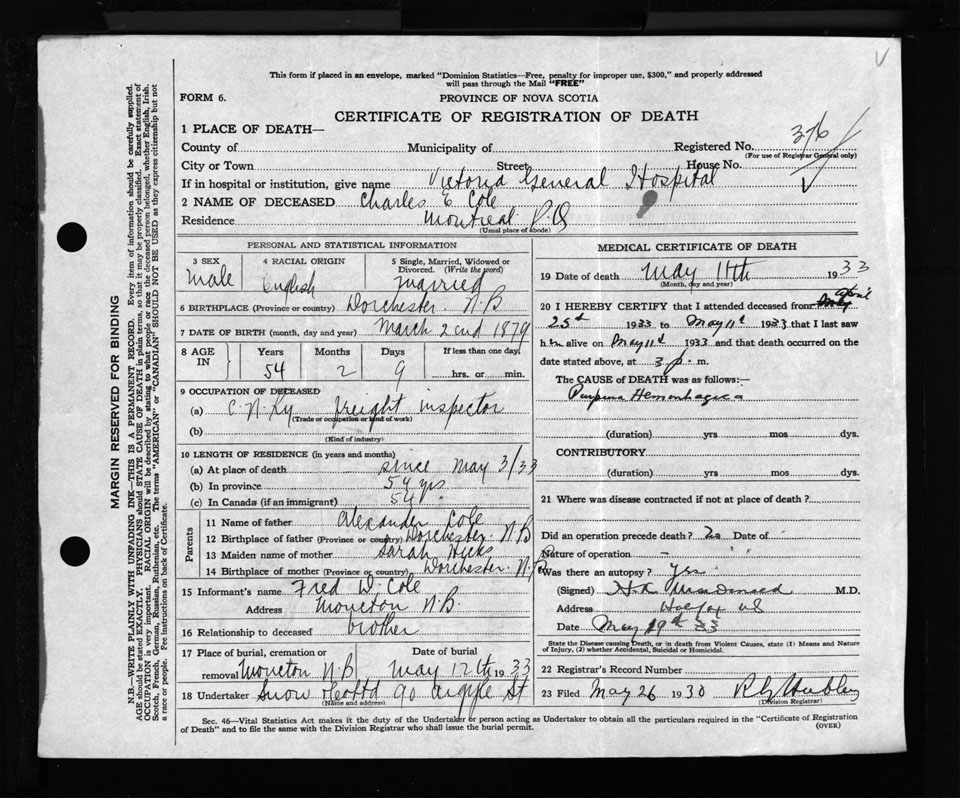 This form if placed in an envelope, marked "Dominion Statistics—Free, penalty for improper use, $300," and properly addressed
will pass through the Mail "FREE"
FORM 6.
PROVINCE OF NOVA SCOTIA
CERTIFICATE OF REGISTRATION OF DEATH
1 PLACE OF DEATH—
376
County of Municipality of Registered No.
(For use of Registrar General only)
City or Town Street House No.
If in hospital or institution, give name Victoria General Hospital
2 NAME OF DECEASED Charles E. Cole
Residence Montreal P.Q
(Usual place of abode)
PERSONAL AND STATISTICAL INFORMATION
3 SEX 4 RACIAL ORIGIN 5 Single, Married, Widowed or
Divorced. (Write the word)
Male English Married
6 BIRTHPLACE (Province or country) Dorchester N.B
7 DATE OF BIRTH (month, day and year) March 2nd 1879
8 AGE IN Years Months Days If less than one day,
54 2 9 hrs. or min.
9 OCCUPATION OF DECEASED
(a) C.N.Ry freight inspector
(Trade or occupation or kind of work)
(b)
(Kind of industry)
10 LENGTH OF RESIDENCE (in years and months)
(a) At place of death since May 3/33
(b) In province 54 yrs
(c) In Canada (if an immigrant) 54 "
Parents
11 Name of father Alexander Cole
12 Birthplace of father (Province or country) Dorchester N.B
13 Maiden name of mother Sarah Hicks
14 Birthplace of mother (Province or country) Dorchester N.B
15 Informant's name Fred W. Cole
Address Moncton N.B.
16 Relationship to deceased brother
17 Place of burial, cremation or Date of burial
removal Moncton N.B May 12th 1933
18 Undertaker Snow & Co Ltd 90 Argyle St
(Name and address)
MEDICAL CERTIFICATE OF DEATH
19 Date of death May 11th 1933
(Month, day and year)
20 I HEREBY CERTIFY that I attended deceased from April
25th 1933 to May 11th 1933 that I last saw
him alive on May 11th 1933 and that death occurred on the
date stated above, at 3 p. m.
The CAUSE OF DEATH was as follows:—
Purpura Hemorrhagica
(duration) yrs mos dys.
CONTRIBUTORY
(duration) yrs mos dys.
21 Where was disease contracted if not at place of death?
Did an operation precede death? No Date of
Nature of operation –
Was there an autopsy? Yes
(Signed) M.D.
Address Halifax NS
Date May 19th 33
State the Disease causing Death, or in death from Violent Causes, state (1) Means and Nature
of Injury, (2) whether Accidental, Suicidal or Homicidal.
22 Registrar's Record Number
23 Filed May 26 1930
(Division Registrar)
Sec. 46—Vital Statistics Act makes it the duty of the Undertaker or person acting as Undertaker to obtain all the particulars required in the "Certificate of Registration
of Death" and to file the same with the Division Registrar who shall issue the burial permit.
(OVER)
MARGIN RESERVED FOR BINDING
N.B.—WRITE PLAINLY WITH UNFADING INK—THIS IS A PERMANENT RECORD. Every item of information should be carefully supplied.
AGE should be stated EXACTLY. PHYSICIANS should STATE CAUSE OF DEATH in plain terms, so that it may be properly classified. Exact statement of
OCCUPATION is very important. RACIAL ORIGIN will be described by stating to what people or race the deceased person belonged, whether English, Irish,
Scotch, French, German, Russian, Ruthenian, etc. The terms "AMERICAN" or "CANADIAN" SHOULD NOT BE USED as they express citizenship but not
a race or people. Fee instructions on back of Certificate.